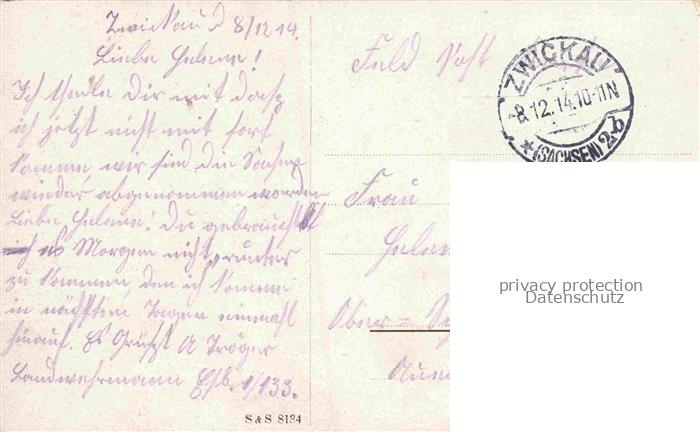 Zwickau d 8/12 14.
Liebe Helene!
Ich theile Dir mit dass
ich jetzt nicht mit fort
komme, wir sind die Sachen
wieder abgenommen worden
Liebe Helene! Du gebrauchst
Morgen nicht runter
zu kommen, den ich komme
in nächsten Tagen einmahl
hinauf. Es Grüßt A Tröger
Landwehrmann Ers. 1/133.
S & S 8134
Feld Post
ZWICKAU
-8.12.14.10-11N
*(SACHSEN) 2b
Frau
Helen
Ober =
Aue
privacy protection
Datenschutz